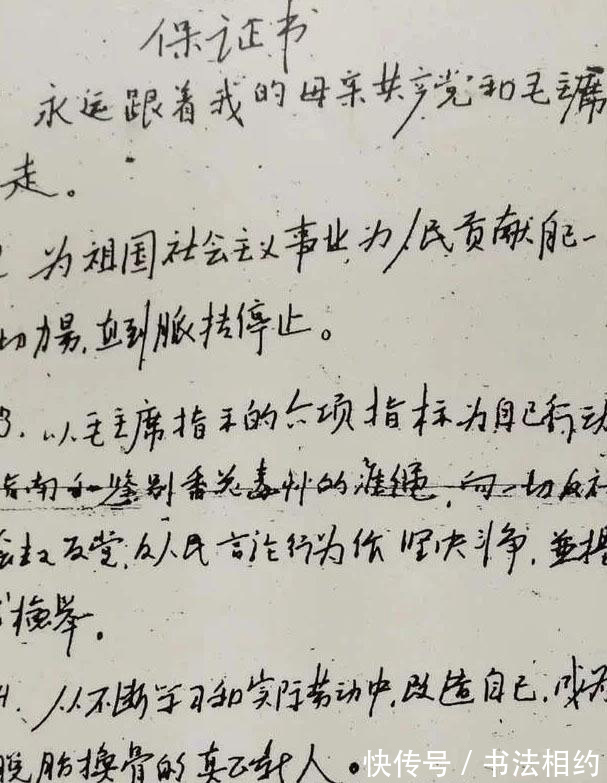 保证书
永远跟着我的母亲共产党和毛主席
走。
2 为祖国社会主义事业,为人民贡献自己一
切力量,直到脉搏停止。
3. 以毛主席指示的六项指标为自己行动
指南和鉴别香花毒草的准绳,向一切反社
会主义反党,反人民言论行为作坚决斗争,并揭
检举。
4. 从不断学习和实际劳动中,改造自己,成为
脱胎换骨的真正新人。
快传号/书法相约